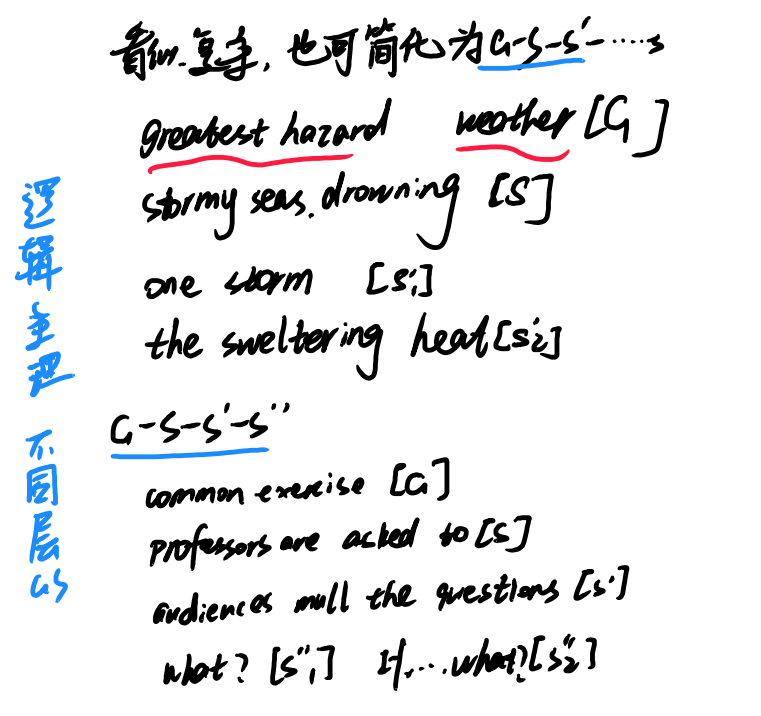 看似复杂,也可简化为G-S-S'-……s
greatest hazard weather [G]
stormy seas. drowning [S]
one storm [S'1]
the sweltering heat [S'2]
G-S-S'-S''
common exercise [G]
professors are asked to [S]
audiences mull the questions [S']
what? [S''1] If,... what? [S''2]
逻辑主理 不同层GS